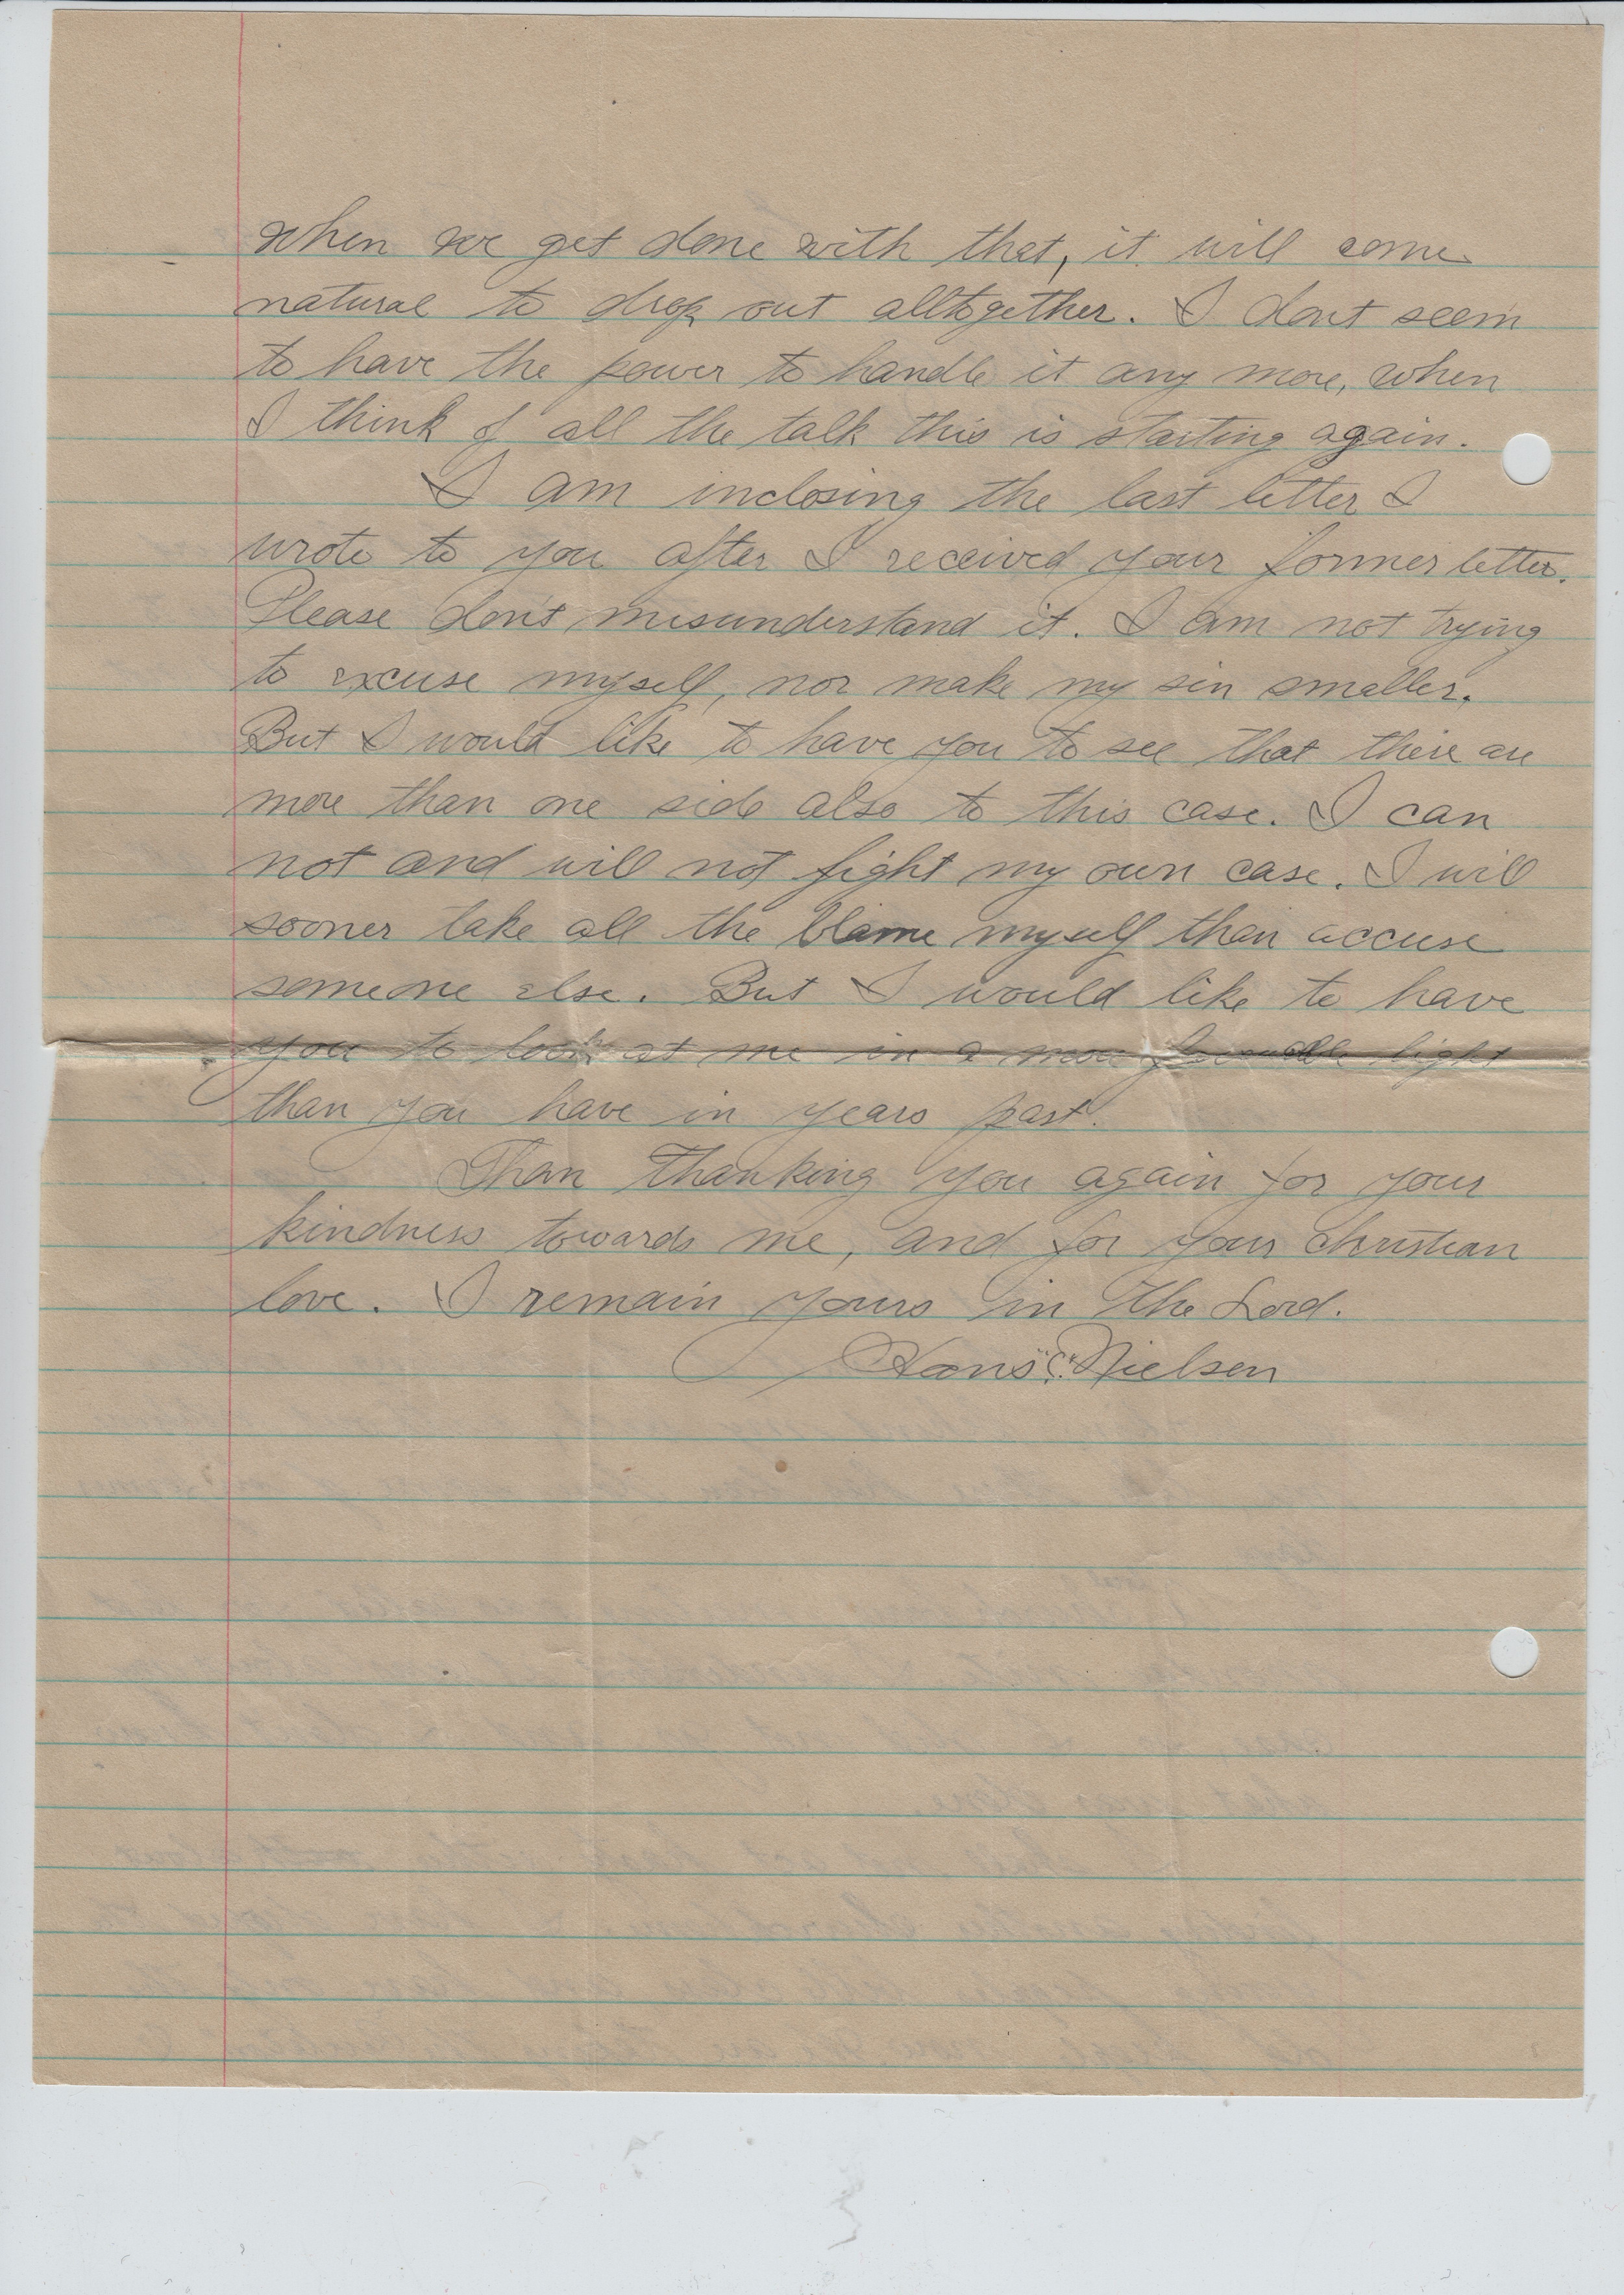 when we get done with that, it will come
natural to drop out alltogether. I dont seem
to have the power to handle it any more, when
I think of all the talk this is starting again.
I am inclosing the last letter I
wrote to you after I received your former letter.
Please don't misunderstand it. I am not trying
to excuse myself, nor make my sin smaller.
But I would like to have you to see that there are
more than one side also to this case. I can
not and will not fight my own case. I will
sooner take all the blame myself than accuse
someone else. But I would like to have
you to look at me in a more favorable light
than you have in years past.
Than thanking you again for your
kindness towards me, and for your christian
love. I remain yours in the Lord.
Hans C. Nielsen